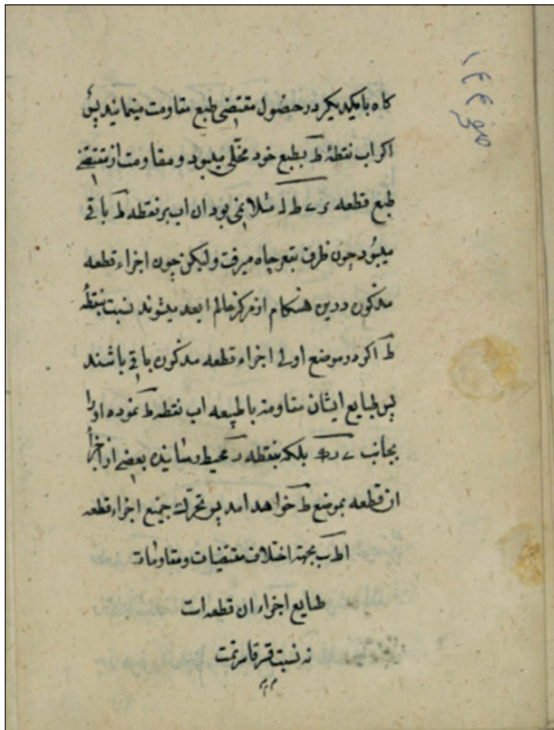 کاه بایکدیکر در حصول مقتضی طبع مقاومت مینمایند پس
اکر اب نقطهٔ ط بطبع خود مخلی میبود و مقاومت از مقتضی
طبع قطعه ط مثلا نمی بود ان اب بر نقطه ط باقی
میبود چون ظرف بقعر چاه میرفت ولیکن چون اجزاء قطعه
مذکون درین هنکام از مرکز عالم ابعد میشوند نسبت بنقطه
ط اکر در موضع اولی اجزاء قطعه مذکون باقی باشند
پس طبایع ایشان مقاومه با طبیعه اب نقطه ط نموده او را
بجانب بلکه بنقطه محیط رسانیده بعضی از اجزأ
ان قطعه بموضع ط خواهد امد پس تحرک جمیع اجزاء قطعه
بجهة اختلاف مقتضیات و مقاومات
طبایع اجزاء ان قطعه است
نه نسبت تمت